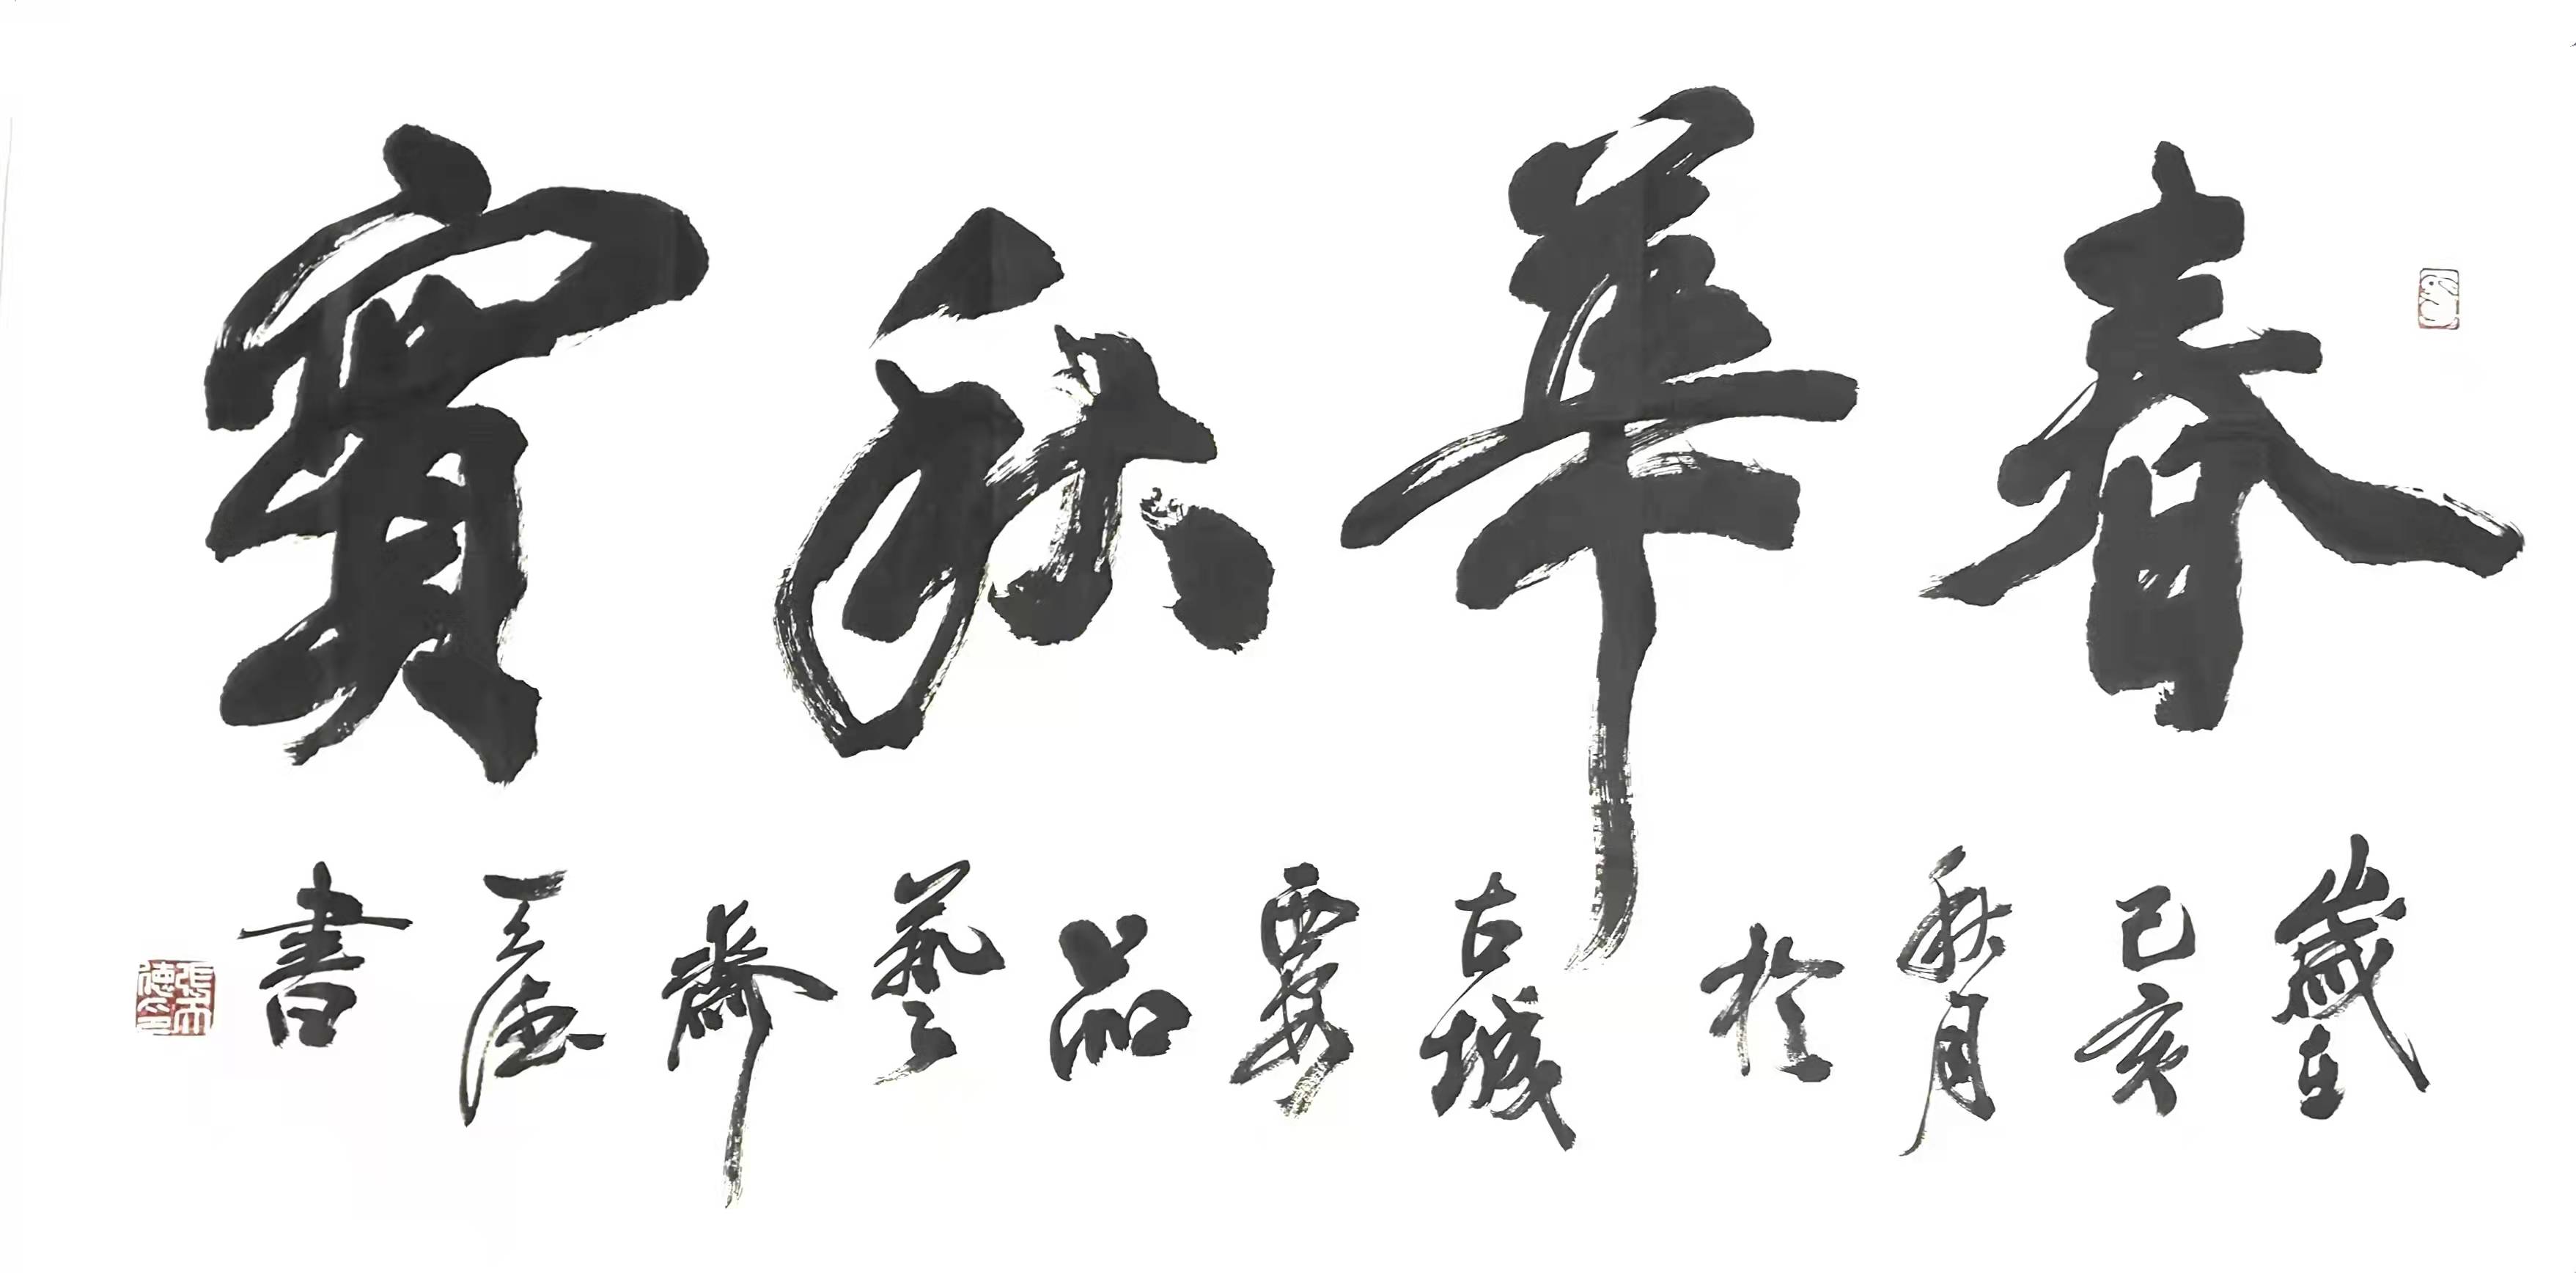 春華秋實
歲在己亥秋月於古城西安品藝齋天德書
張天德印